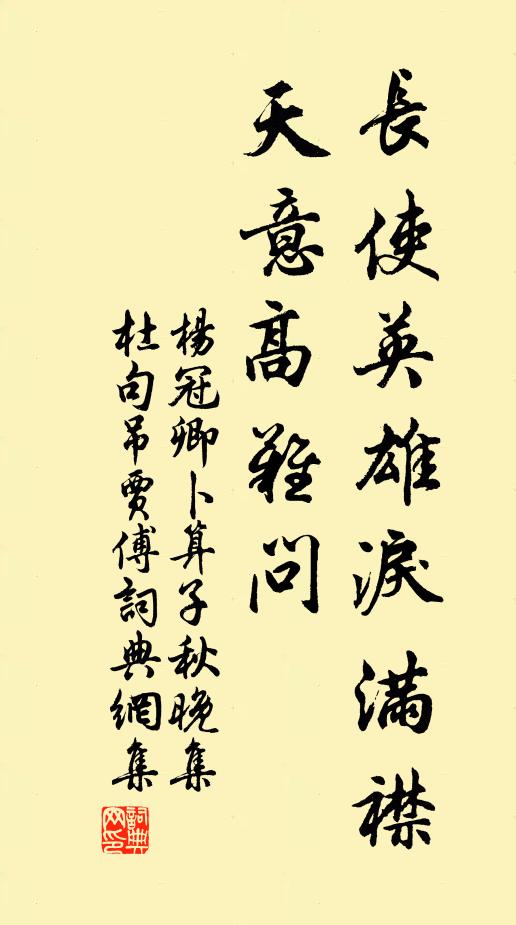 長使英雄淚滿襟
天意高難問
楊冠卿卜算子秋晚集
杜句吊賈傅詞典網集
詞典網印